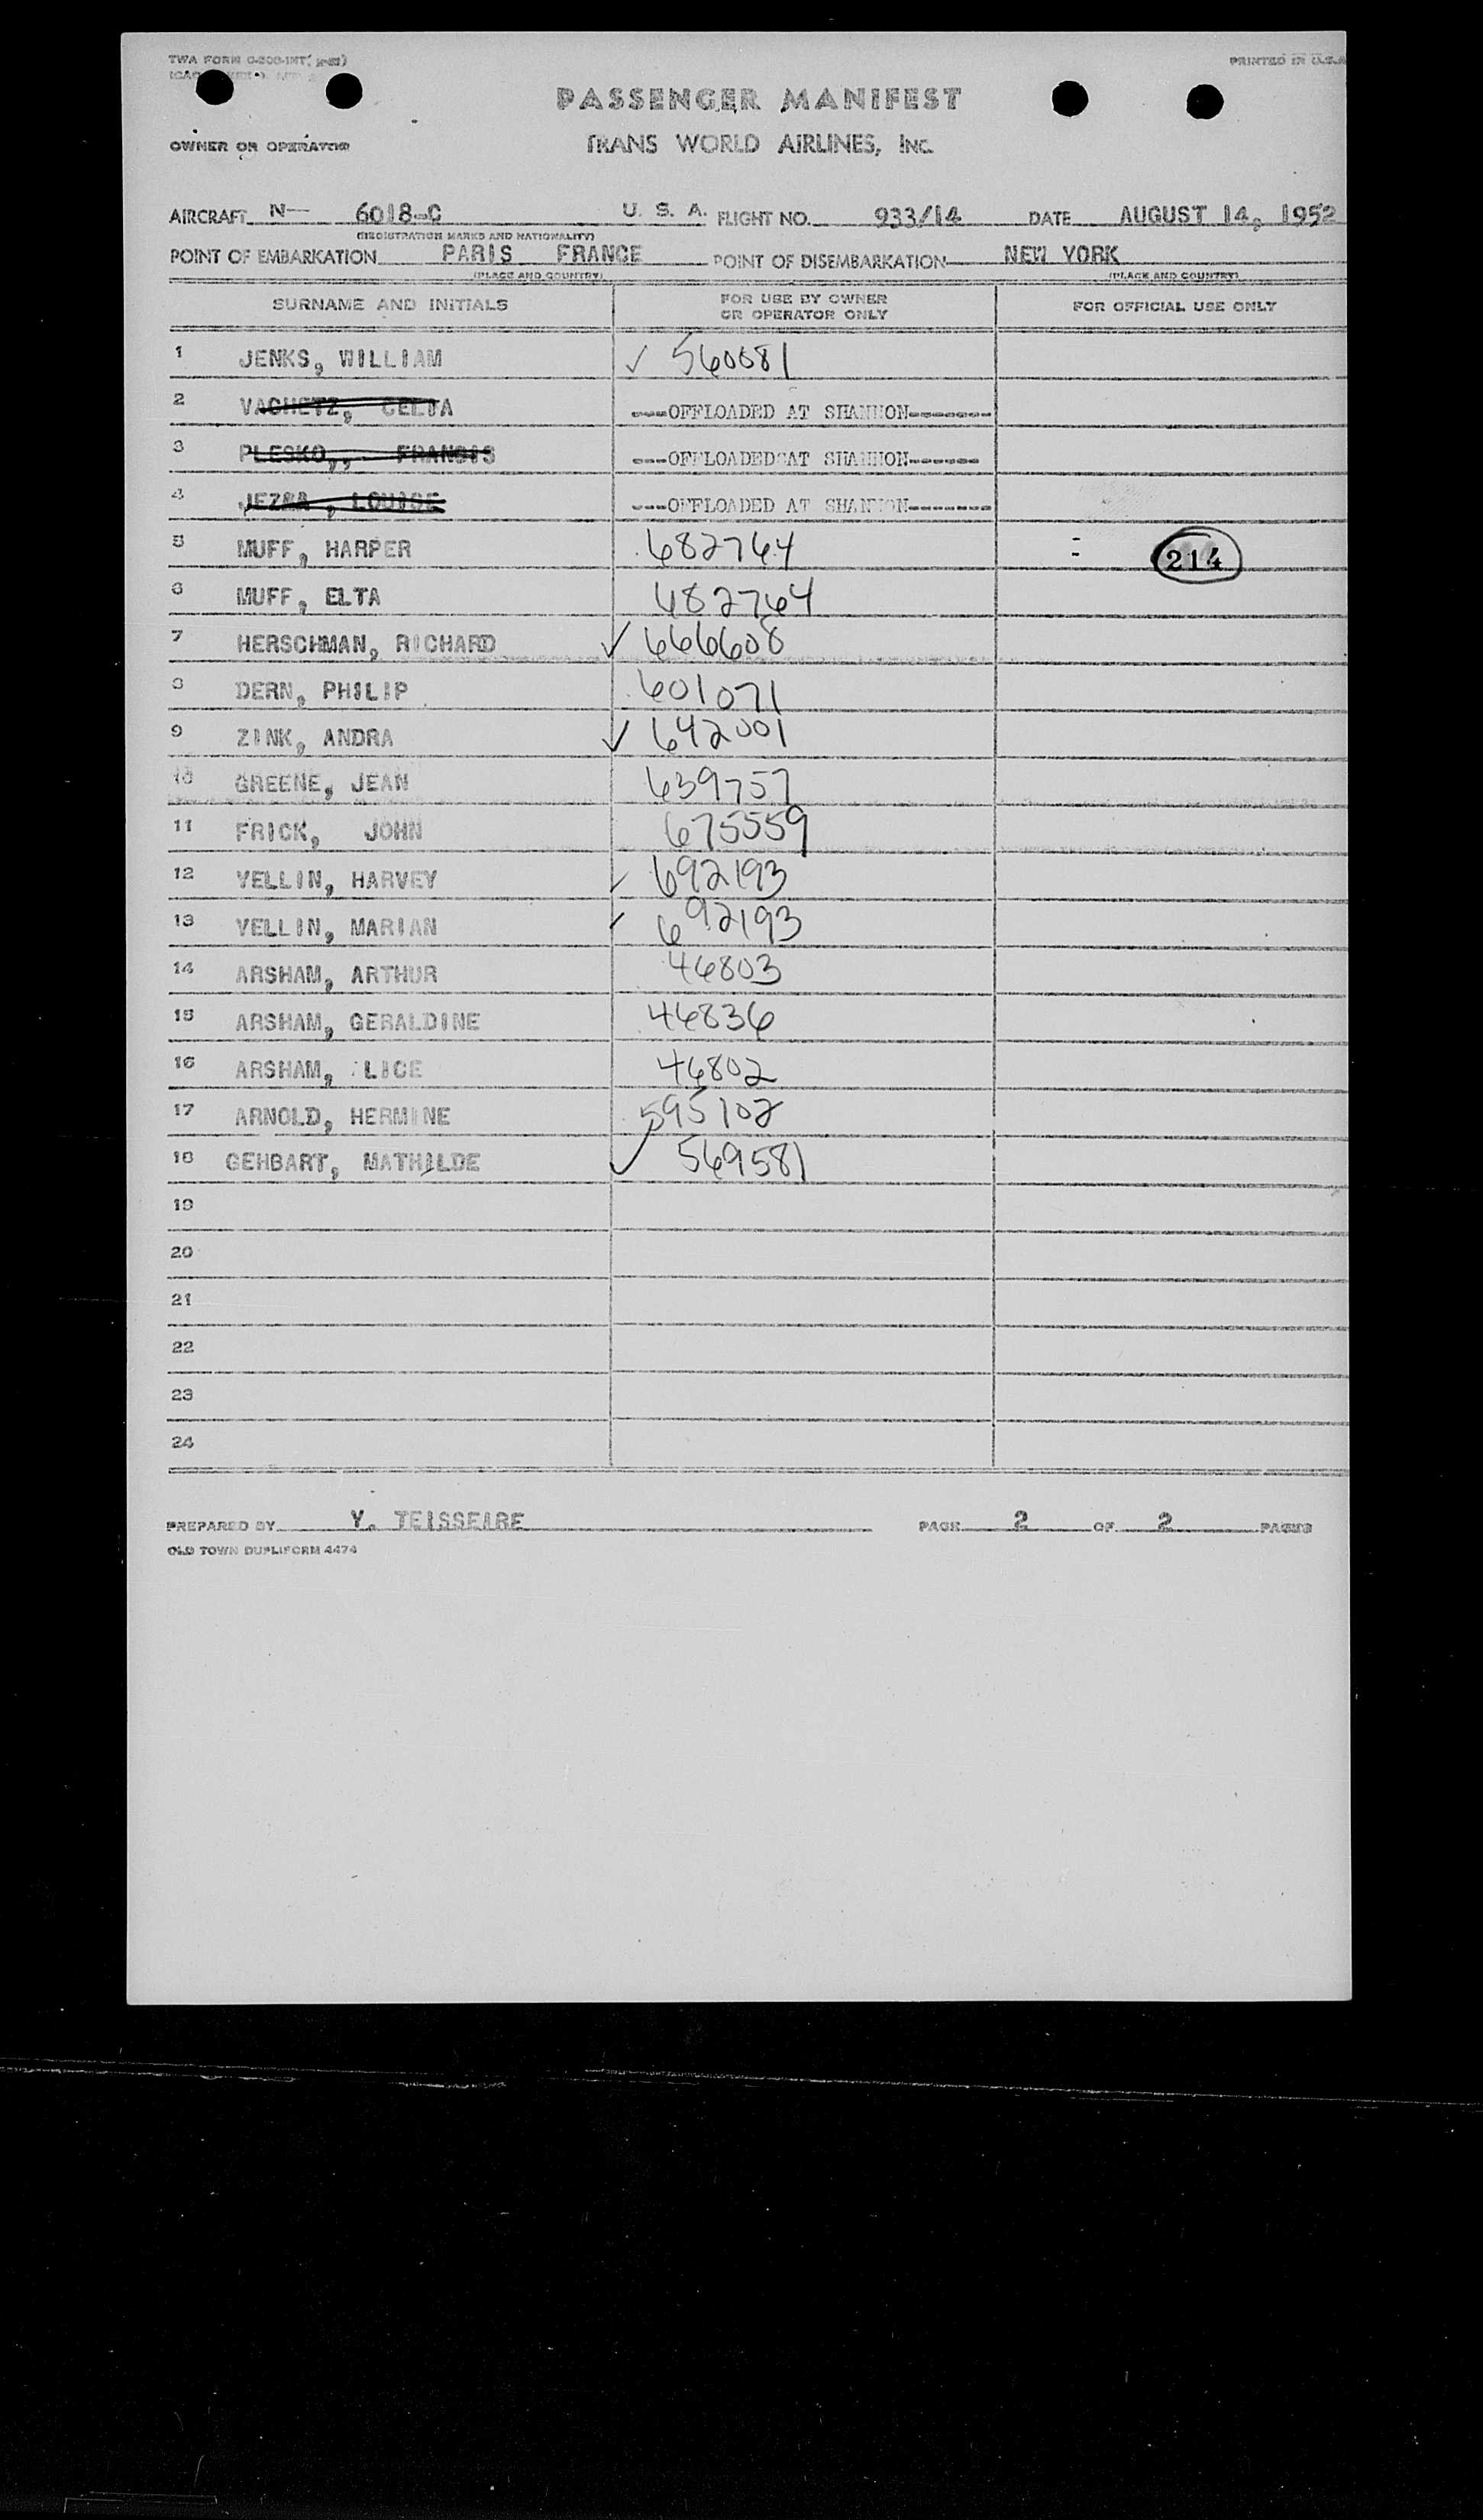 TWA FORM
PRINTED IN U.S.A
PASSENGER MANIFEST
OWNER OR OPERATOR TRANS WORLD AIRLINES, INC.
AIRCRAFT N— 6018-C U. S. A. FLIGHT NO. 933/14 DATE AUGUST 14, 1952
(REGISTRATION MARKS AND NATIONALITY)
POINT OF EMBARKATION PARIS FRANCE POINT OF DISEMBARKATION NEW YORK
(PLACE AND COUNTRY) (PLACE AND COUNTRY)
SURNAME AND INITIALS FOR USE BY OWNER OR OPERATOR ONLY FOR OFFICIAL USE ONLY
1 JENKS, WILLIAM ✓ 560081
2 VACHETZ, CELTA ---OFFLOADED AT SHANNON-------
3 PLESKO,, FRANCIS ---OFFLOADED AT SHANNON------
4 , LOUISE ---OFFLOADED AT SHANNON-------
5 MUFF, HARPER 682764 214
6 MUFF, ELTA 682764
7 HERSCHMAN, RICHARD ✓ 666608
8 DERN, PHILIP 601071
9 ZINK, ANDRA ✓ 642001
10 GREENE, JEAN 639757
11 FRICK, JOHN 675559
12 YELLIN, HARVEY ✓ 692193
13 YELLIN, MARIAN ✓ 692193
14 ARSHAM, ARTHUR 46803
15 ARSHAM, GERALDINE 46836
16 ARSHAM, LICE 46802
17 ARNOLD, HERMINE 595102
18 GEHBART, MATHILDE ✓ 569581
19
20
21
22
23
24
PREPARED BY Y. TEISSEIRE PAGE 2 OF 2 PAGES
OLD TOWN DUPLIFORM 4474